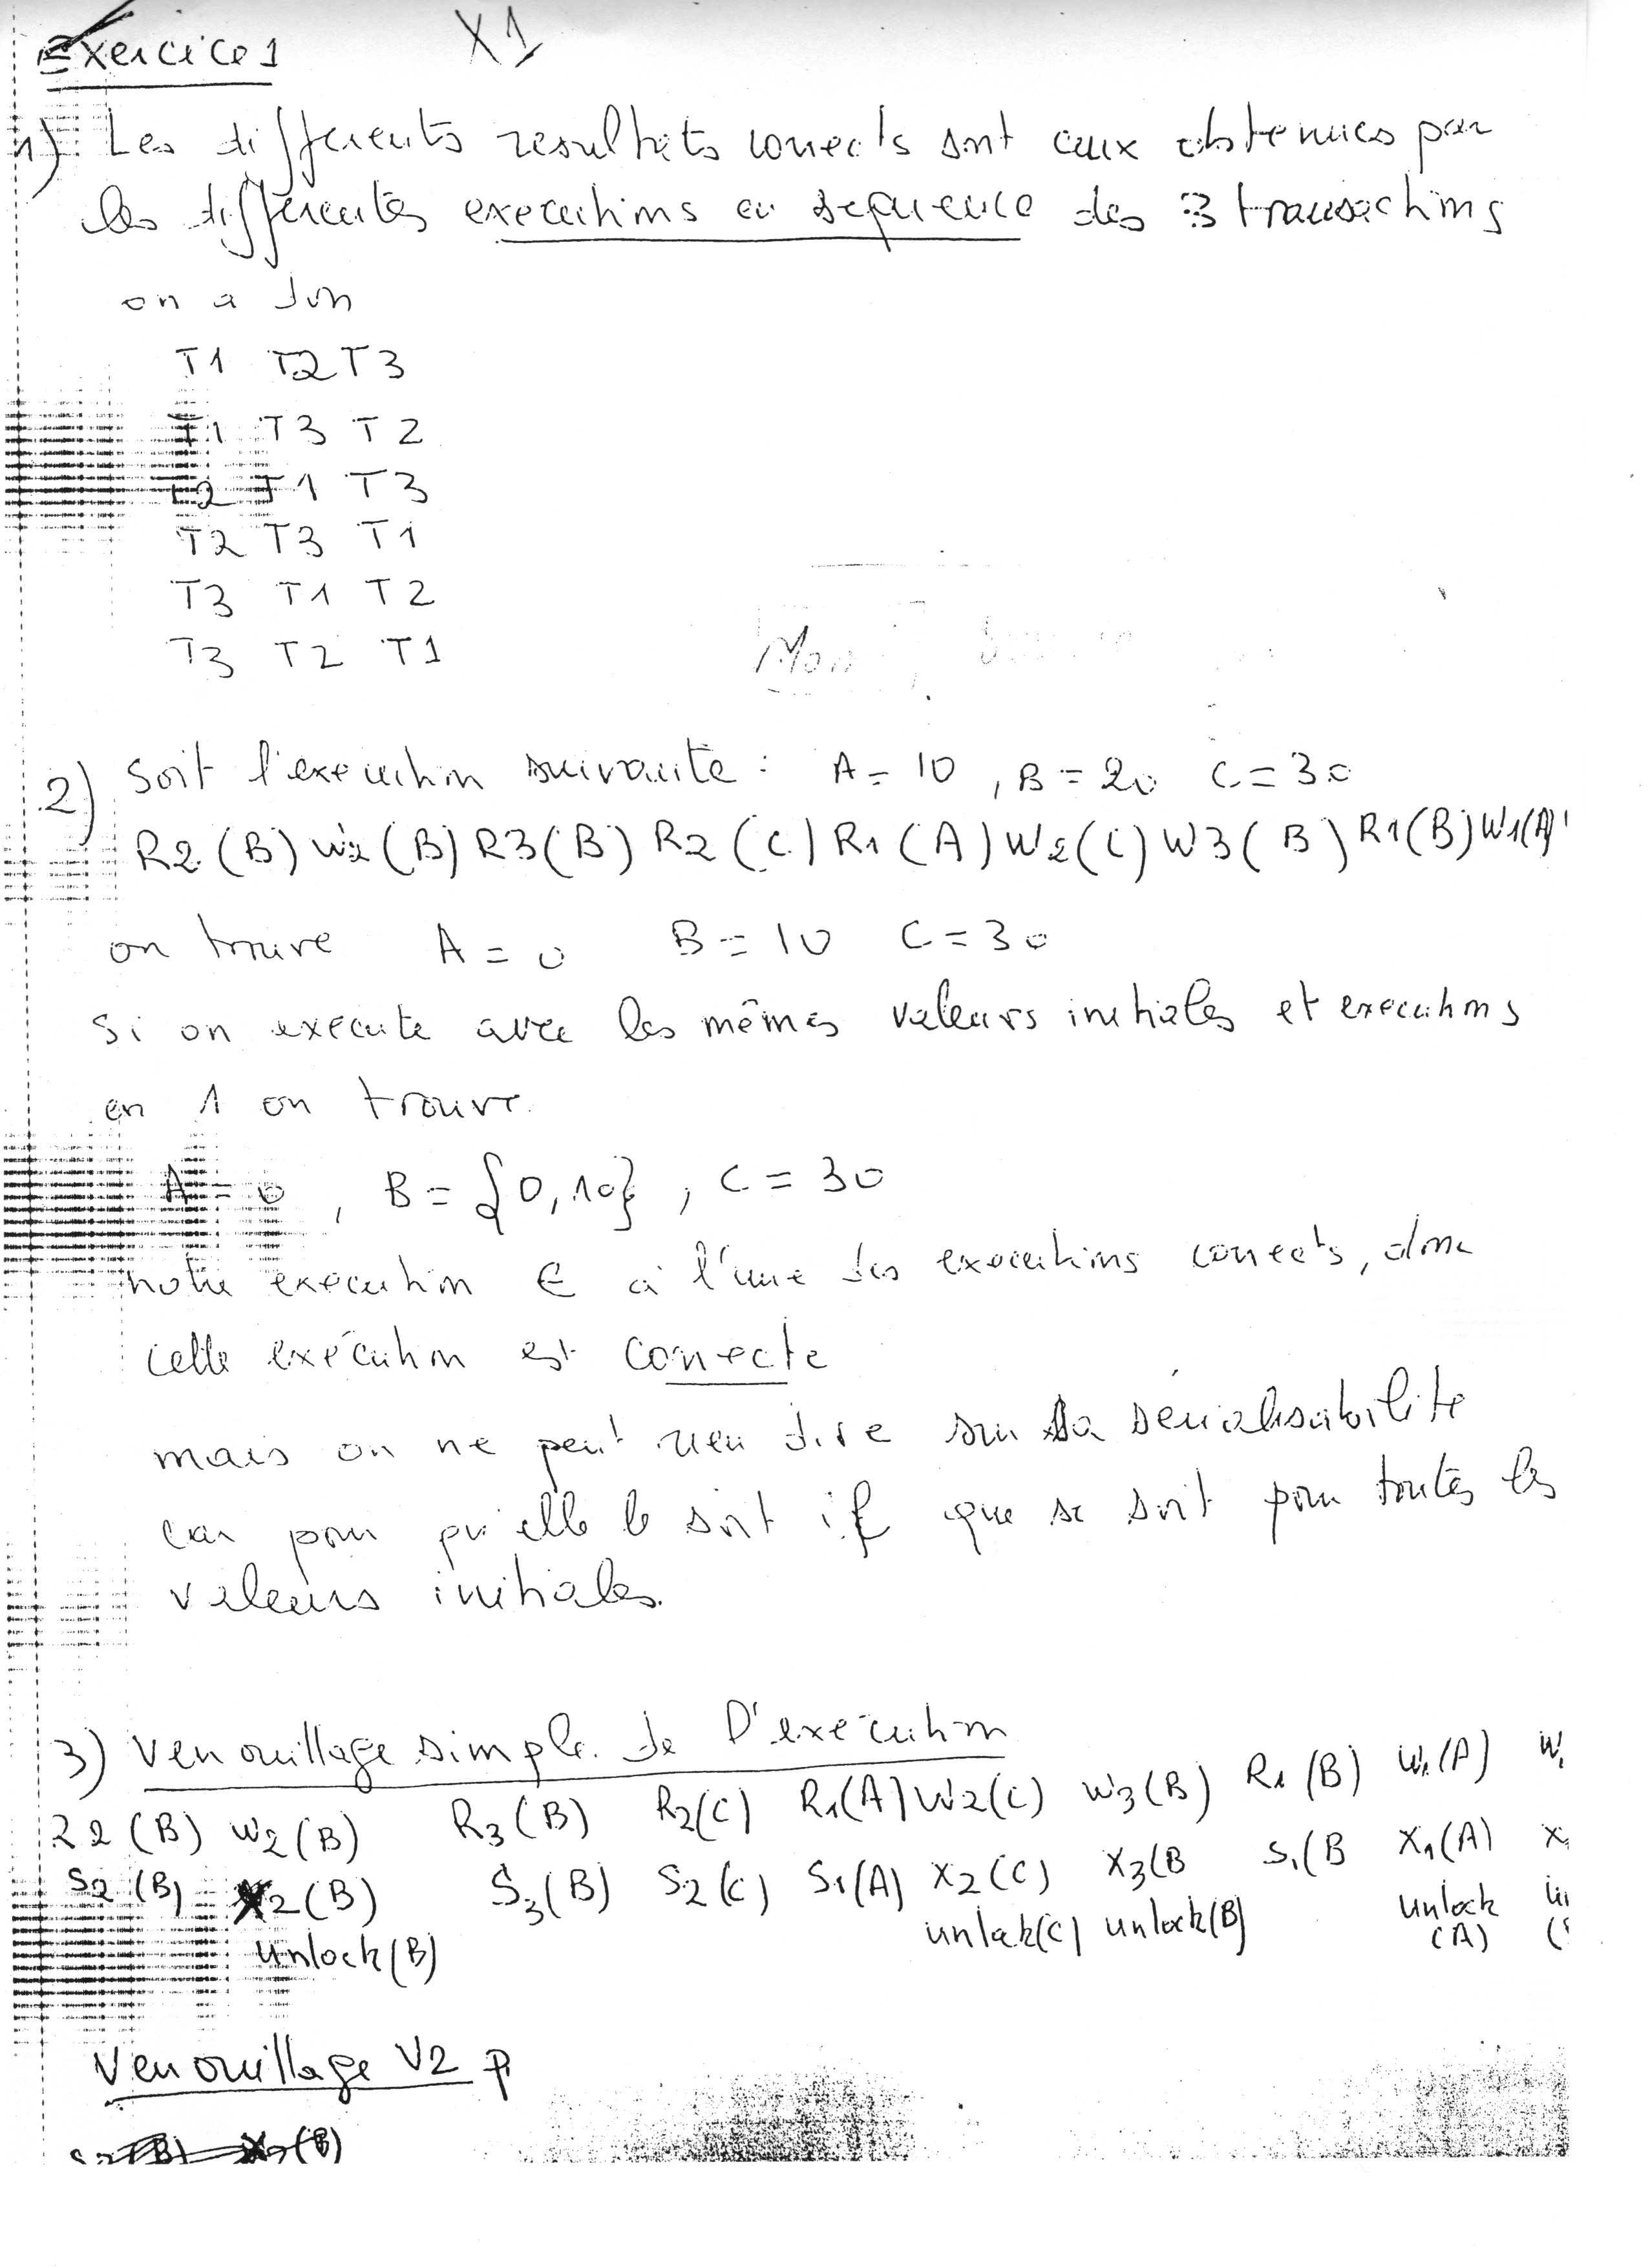 Exercice 1 X1
1) Les differents resultats corrects sont ceux obtenues par
les differentes executions en sequence des 3 transactions
on a don
T1 T2 T3
T1 T3 T2
T2 T1 T3
T2 T3 T1
T3 T1 T2
T3 T2 T1
2) Soit l'execution suivante : A = 10 , B = 20 C = 30
R2 (B) W2 (B) R3 (B) R2 (C) R1 (A) W2 (C) W3 (B) R1 (B) W1 (A)
on trouve A = 0 B = 10 C = 30
si on execute avec les mêmes valeurs initiales et executions
en 1 on trouve
A = 0 , B = {0,10} , C = 30
notre execution ∈ à l'une des executions corrects, donc
cette exécution est correcte
mais on ne peut rien dire sur sa sérialisabilite
car pour qu'elle le soit il f que se soit pour toutes les
valeurs initiales.
3) Verrouillage simple de l'exécution
R2 (B) W2 (B) R3 (B) R2 (C) R1 (A) W2 (C) W3 (B) R1 (B) W1 (A) W
S2 (B) X2 (B) S3 (B) S2 (C) S1 (A) X2 (C) X3 (B S1 (B X1 (A) X
unlock (B) unlock (C) unlock (B) unlock
(A)
Verrouillage V2 p
S2 (B) X2 (B)